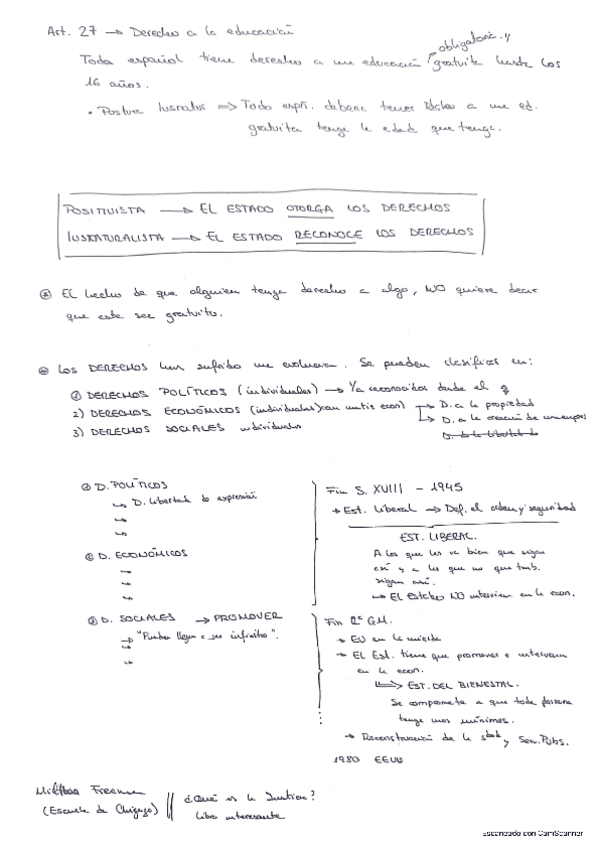 Art. 27 → Derecho a la educación
obligatoria y
Todo español tiene derecho a una educación gratuita hasta los
16 años.
• Postura Iusnatur ⇒ Todo espñ. debane tener Dcho a una ed.
gratuita tenga la edad que tenga.
POSITIVISTA → EL ESTADO OTORGA LOS DERECHOS
IUSNATURALISTA → EL ESTADO RECONOCE LOS DERECHOS
El hecho de que alguien tenga derecho a algo, NO quiere decir
que este sea gratuito.
Los DERECHOS han sufrido una evolución. Se pueden clasificar en:
1) DERECHOS POLÍTICOS (individuales) → Ya reconocidos desde el
2) DERECHOS ECONÓMICOS (individuales) con matiz econ) → D. a la propiedad
→ D. a la creación de
3) DERECHOS SOCIALES individuales
D. de la libertad de
D. POLÍTICOS
→ D. libertad de expresión
D. ECONÓMICOS
D. SOCIALES → PROMOVER
→ "Pueden llegar a ser infinitos".
Fin S. XVIII - 1945
→ Est. liberal → Def. el orden y seguridad
EST. LIBERAL.
A los que les va bien que sigan
así y a los que no que tmb.
sigan así.
→ El Estado NO interviene en la econ.
Fin 2ª G.M.
→ EU en la mierda
→ El Est. tiene que promover e intervenir
en la econ.
⇒ EST. DEL BIENESTAR.
Se compromete a que toda persona
tenga unos mínimos.
→ Reconstrucción de la y Ser. Pubs.
1980 EEUU
(Escuela de Chicago)
¿Qué es la Justicia?
libro interesante
Escaneado con CamScanner